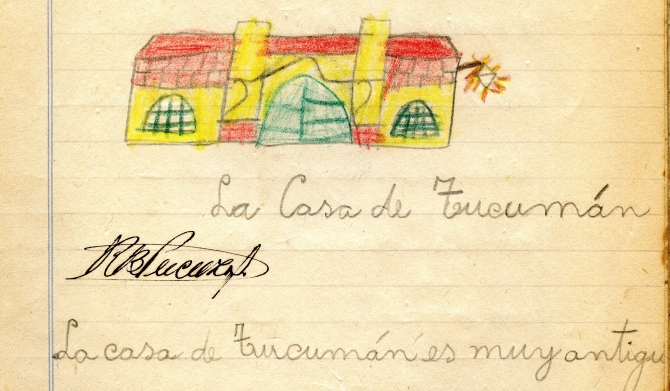 La Casa de Tucumán
La casa de Tucumán es muy